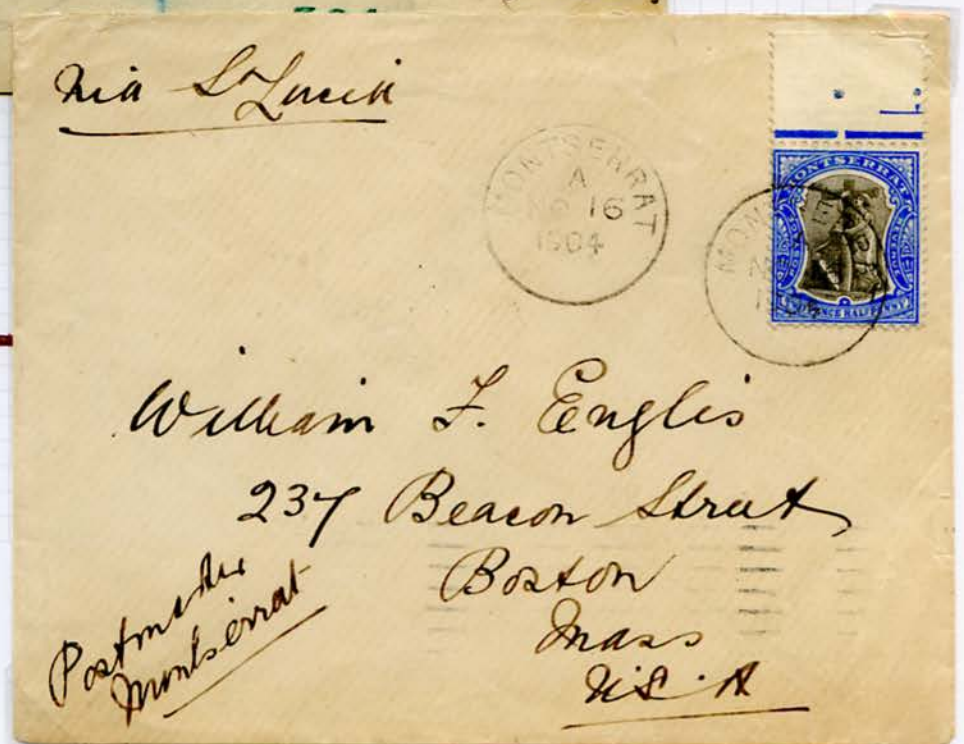 Via St Lucia
MONTSERRAT
A
NO 16
1904
MONTSERRAT
TWOPENCE HALFPENNY
William F. Englis
237 Beacon Street
Boston
Mass
U.S.A
Postmaster
Montserrat